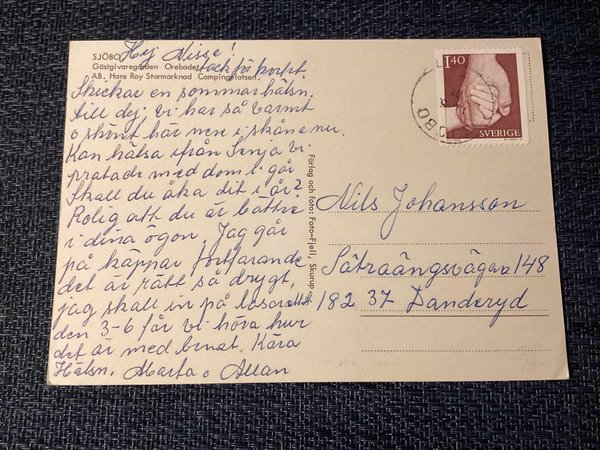 SJÖBO
Gästgivaregården Orebacken
AB. Hans Roy Stormarknad Campingplatsen.
Hej Nisse!
Tack för kortet.
Skickar en sommarhälsn.
till dej vi har så varmt
o skönt här nere i skåne nu.
Kan hälsa ifrån Senja vi
pratade med dom i går
Skall du åka dit i år?
Rolig att du är bättre
i dina ögon. Jag går
på käppar fortfarande
det är rätt så drygt,
jag skall in på lasarettet
den 3-6 får vi höra hur
det är med benet. Kära
Hälsn. Marta o Allan
Förlag och foto: Foto-Fjell, Skurup
1.40
SVERIGE
Nils Johansson
Sätraängsvägen 148
182 37 Danderyd